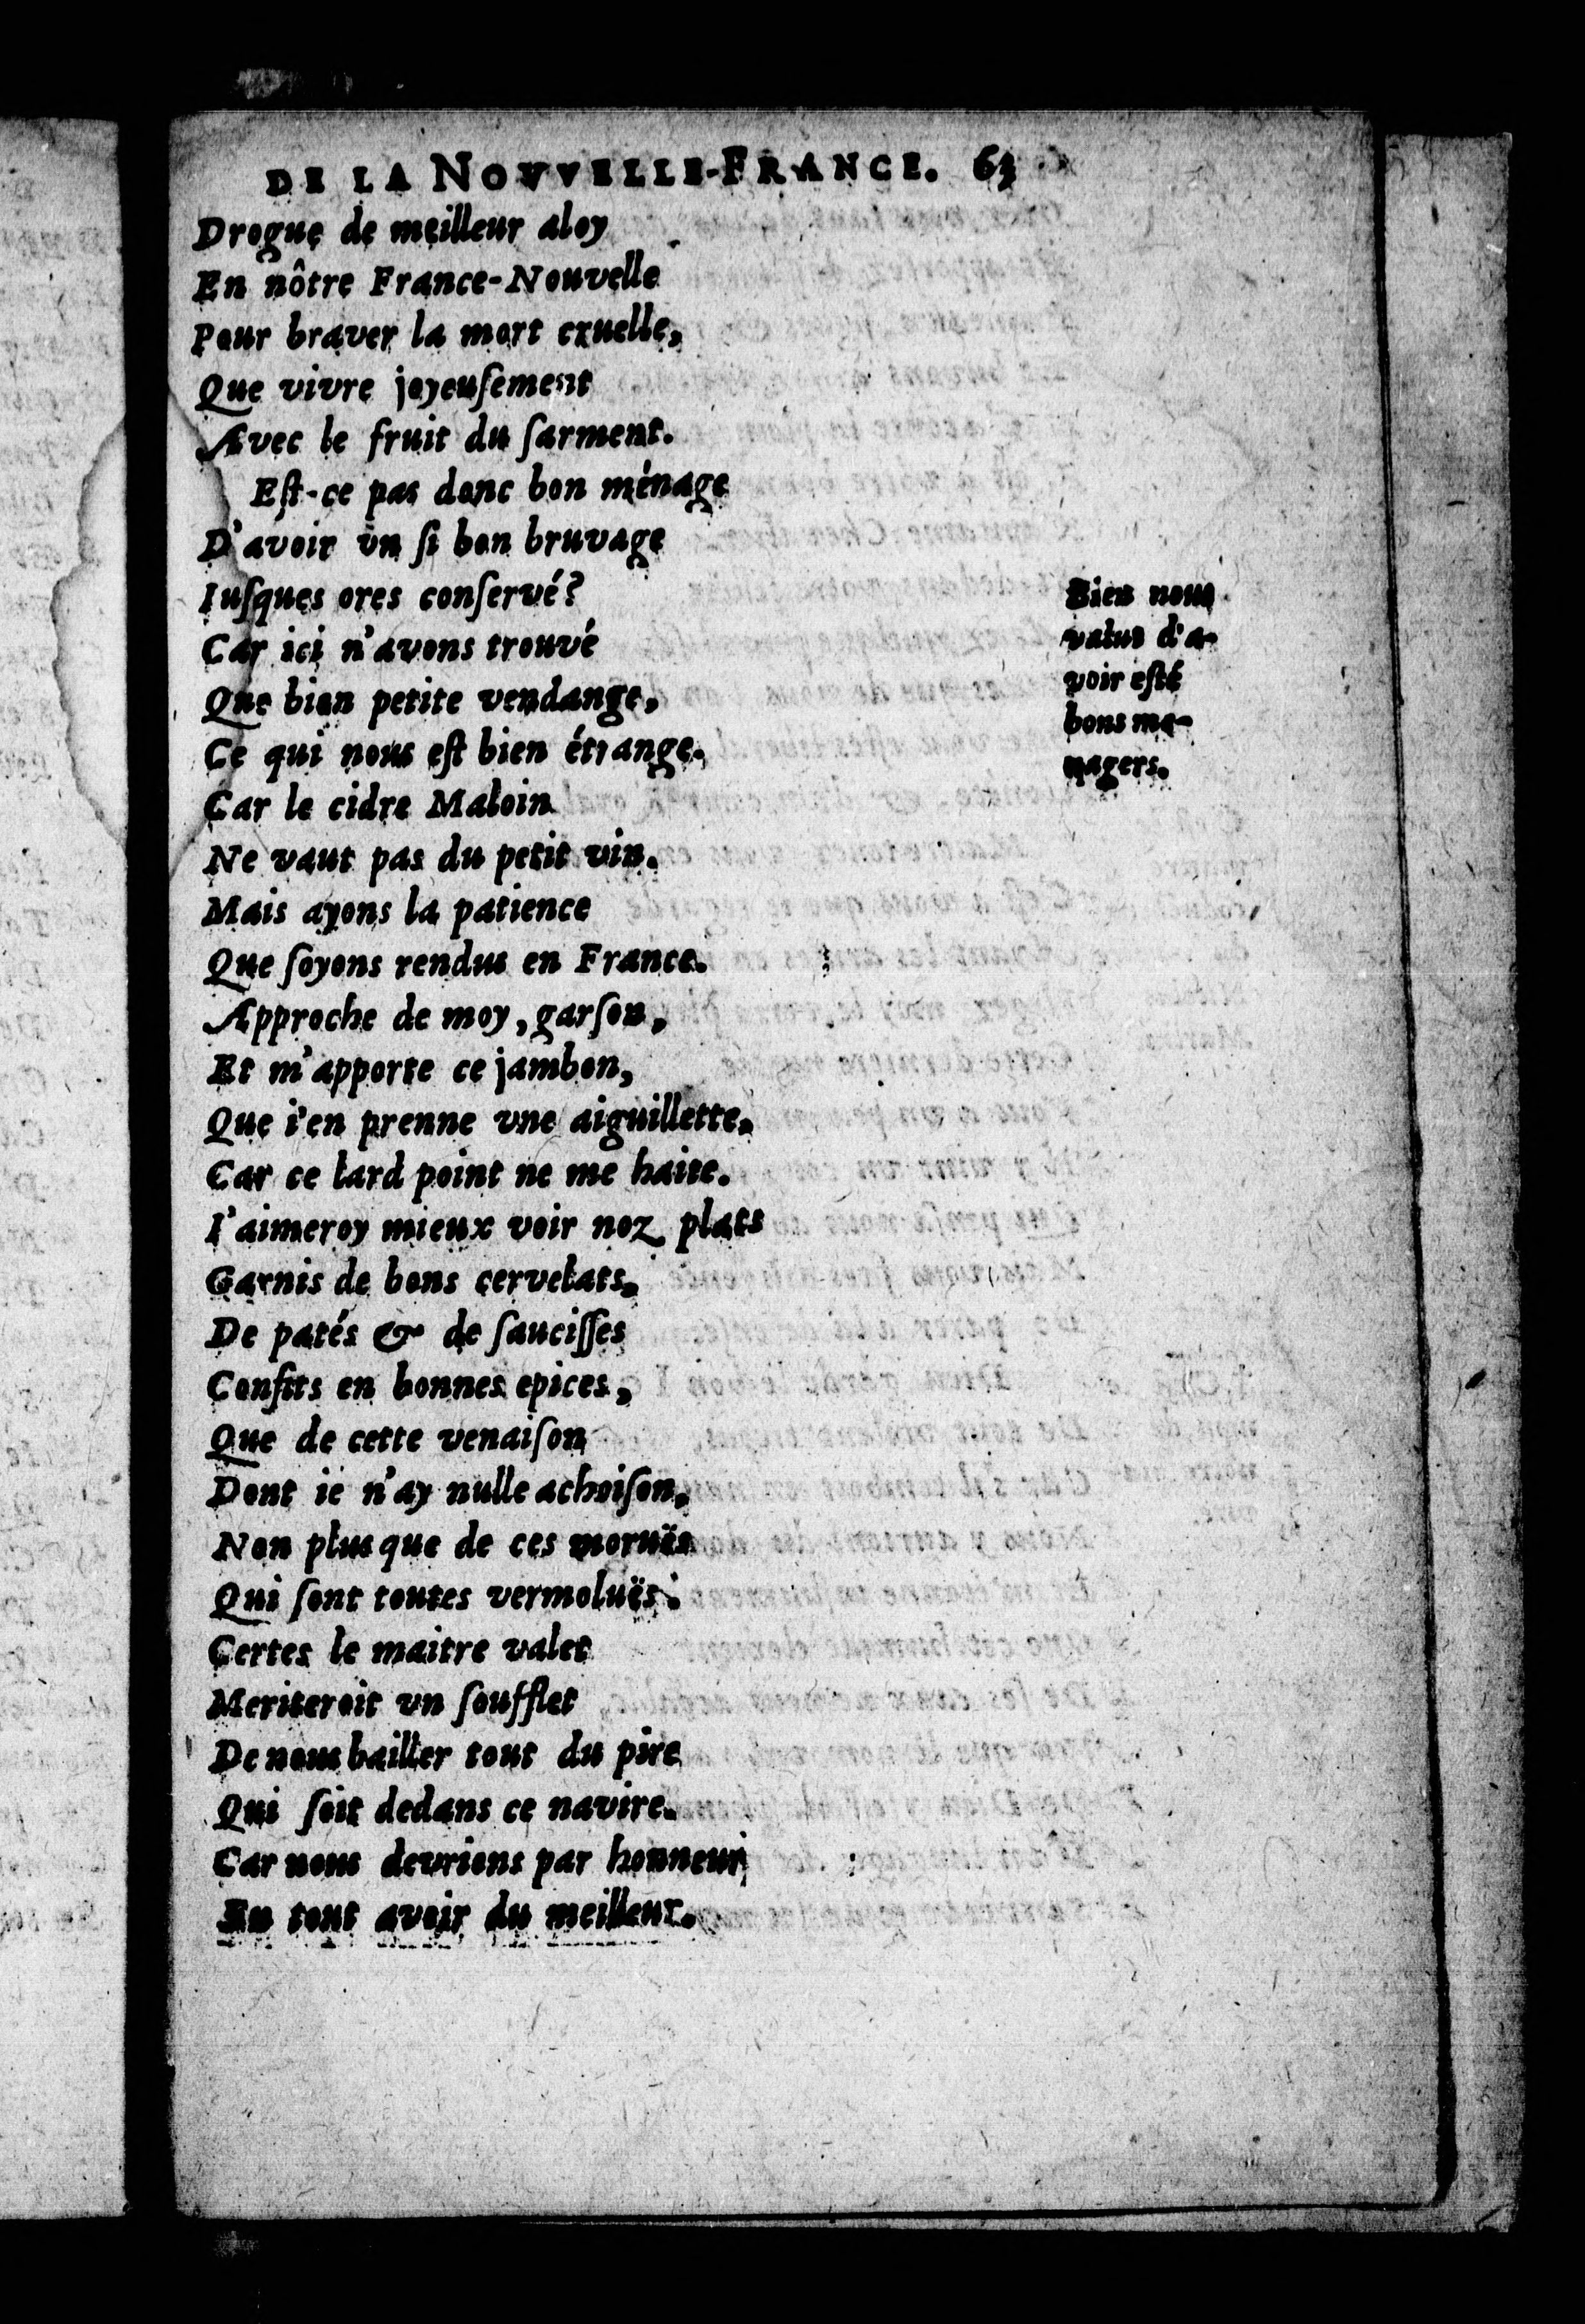 DE LA NOVVELLE-FRANCE. 63
Drogue de meilleur aloy
En nôtre France-Nouvelle
Pour braver la mort cruelle,
Que vivre joyeuſement
Avec le fruit du ſarment.
Eſt-ce pas donc bon ménage
D'avoir vn ſi bon bruvage
Iuſques ores conſervé?
Car ici n'avons trouvé
Que bien petite vendange,
Ce qui nous eſt bien étrange.
Car le cidre Maloin
Ne vaut pas du petit vin.
Mais ayons la patience
Que ſoyons rendus en France.
Approche de moy, garſon,
Et m'apporte ce jambon,
Que i'en prenne vne aiguillette,
Car ce lard point ne me haite.
I'aimeroy mieux voir noz plats
Garnis de bons cervelats,
De patés & de ſauciſſes
Confits en bonnes epices,
Que de cette venaiſon
Dont ie n'ay nulle achoiſon,
Non plus que de ces moruës
Qui ſont toutes vermoluës.
Certes le maitre valet
Meriteroit vn ſoufflet
De nous bailler tout du pire
Qui ſoit dedans ce navire.
Car nous devrions par honneur
En tout avoir du meilleur.
Bien nous
valut d'a-
voir eſté
bons me-
nagers.